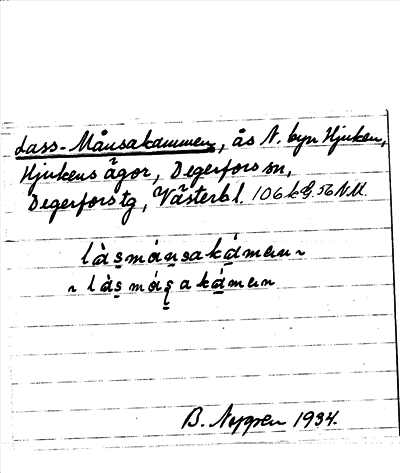 Lass-Månsakammen, ås N. byn Hjuken,
Hjukens ägor, Degerfors sn,
Degerfors tg, Västerbl. 106 kG. 56 N.M.
làsmánsakámen ~
~ làs má s̱ akámen
B. Nygren 1934.